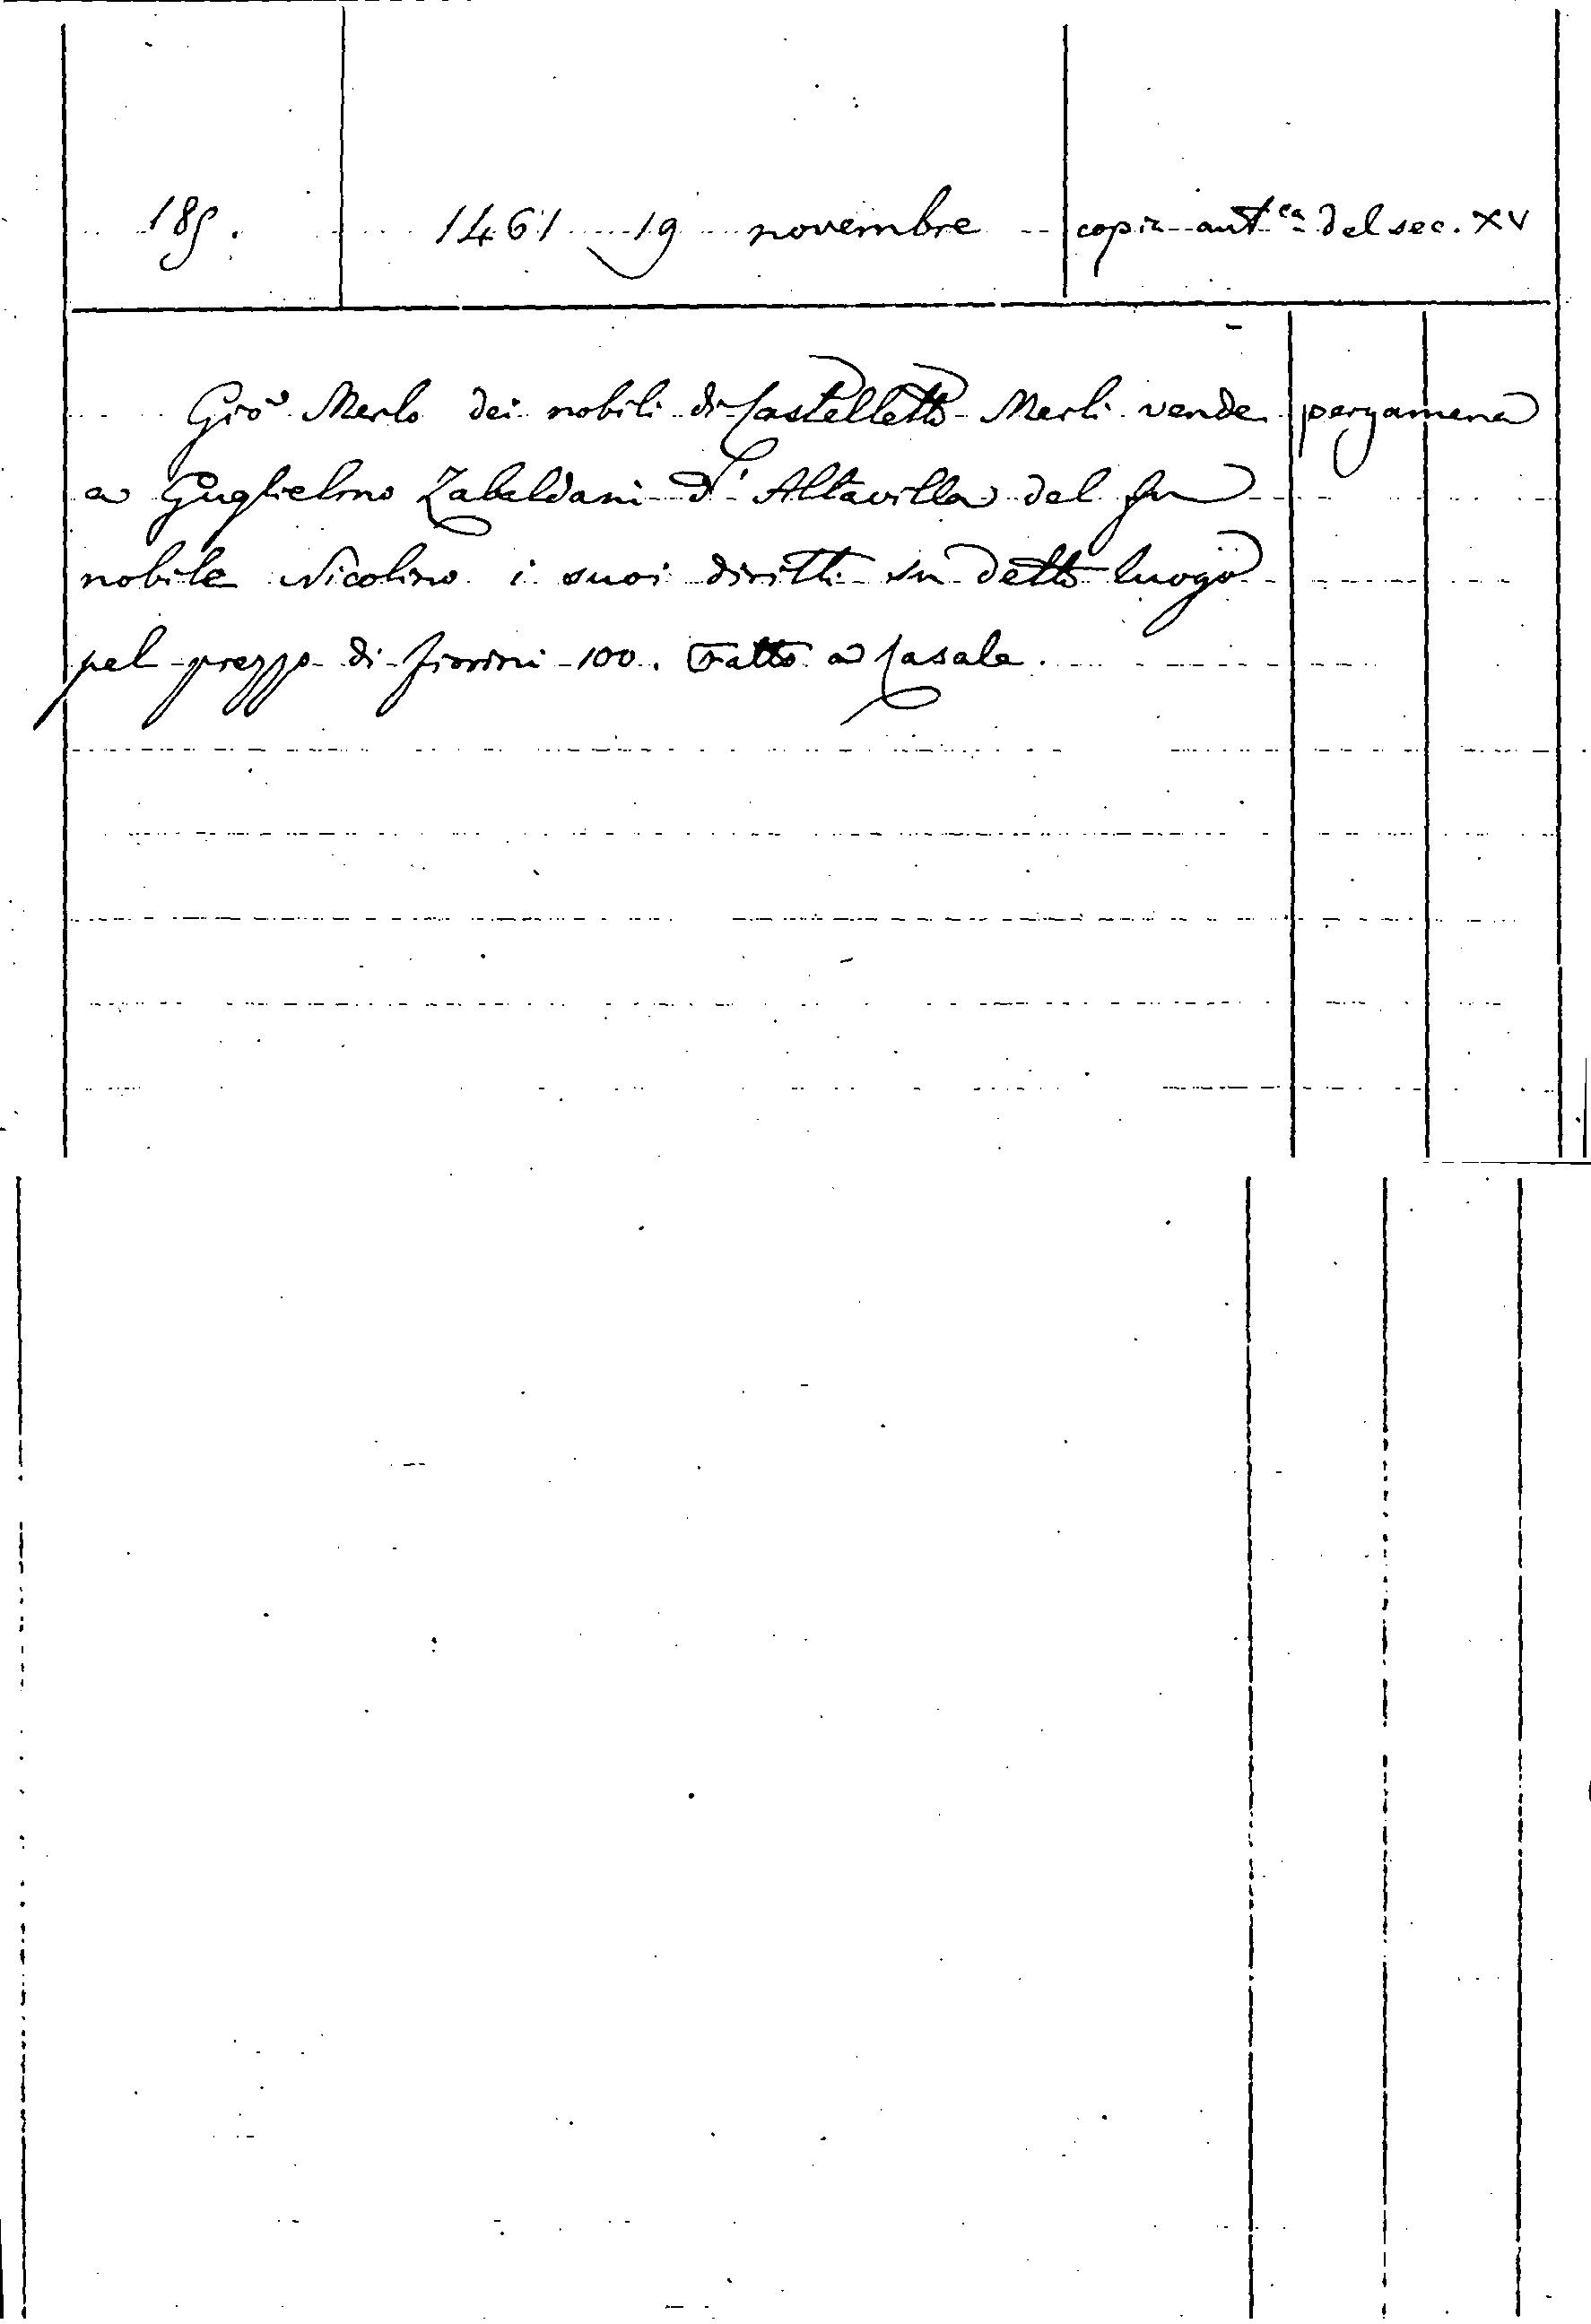 185. 1461 19 novembre copia aut.ca del sec. XV
Gio Merlo dei nobili di Castelletto Merli vende pergamena
a Guglielmo Zabaldani d'Altavilla del fu
nobile Nicolino i suoi diritti su detto luogo
pel prezzo di fiorini 100. Fatto a Casale.